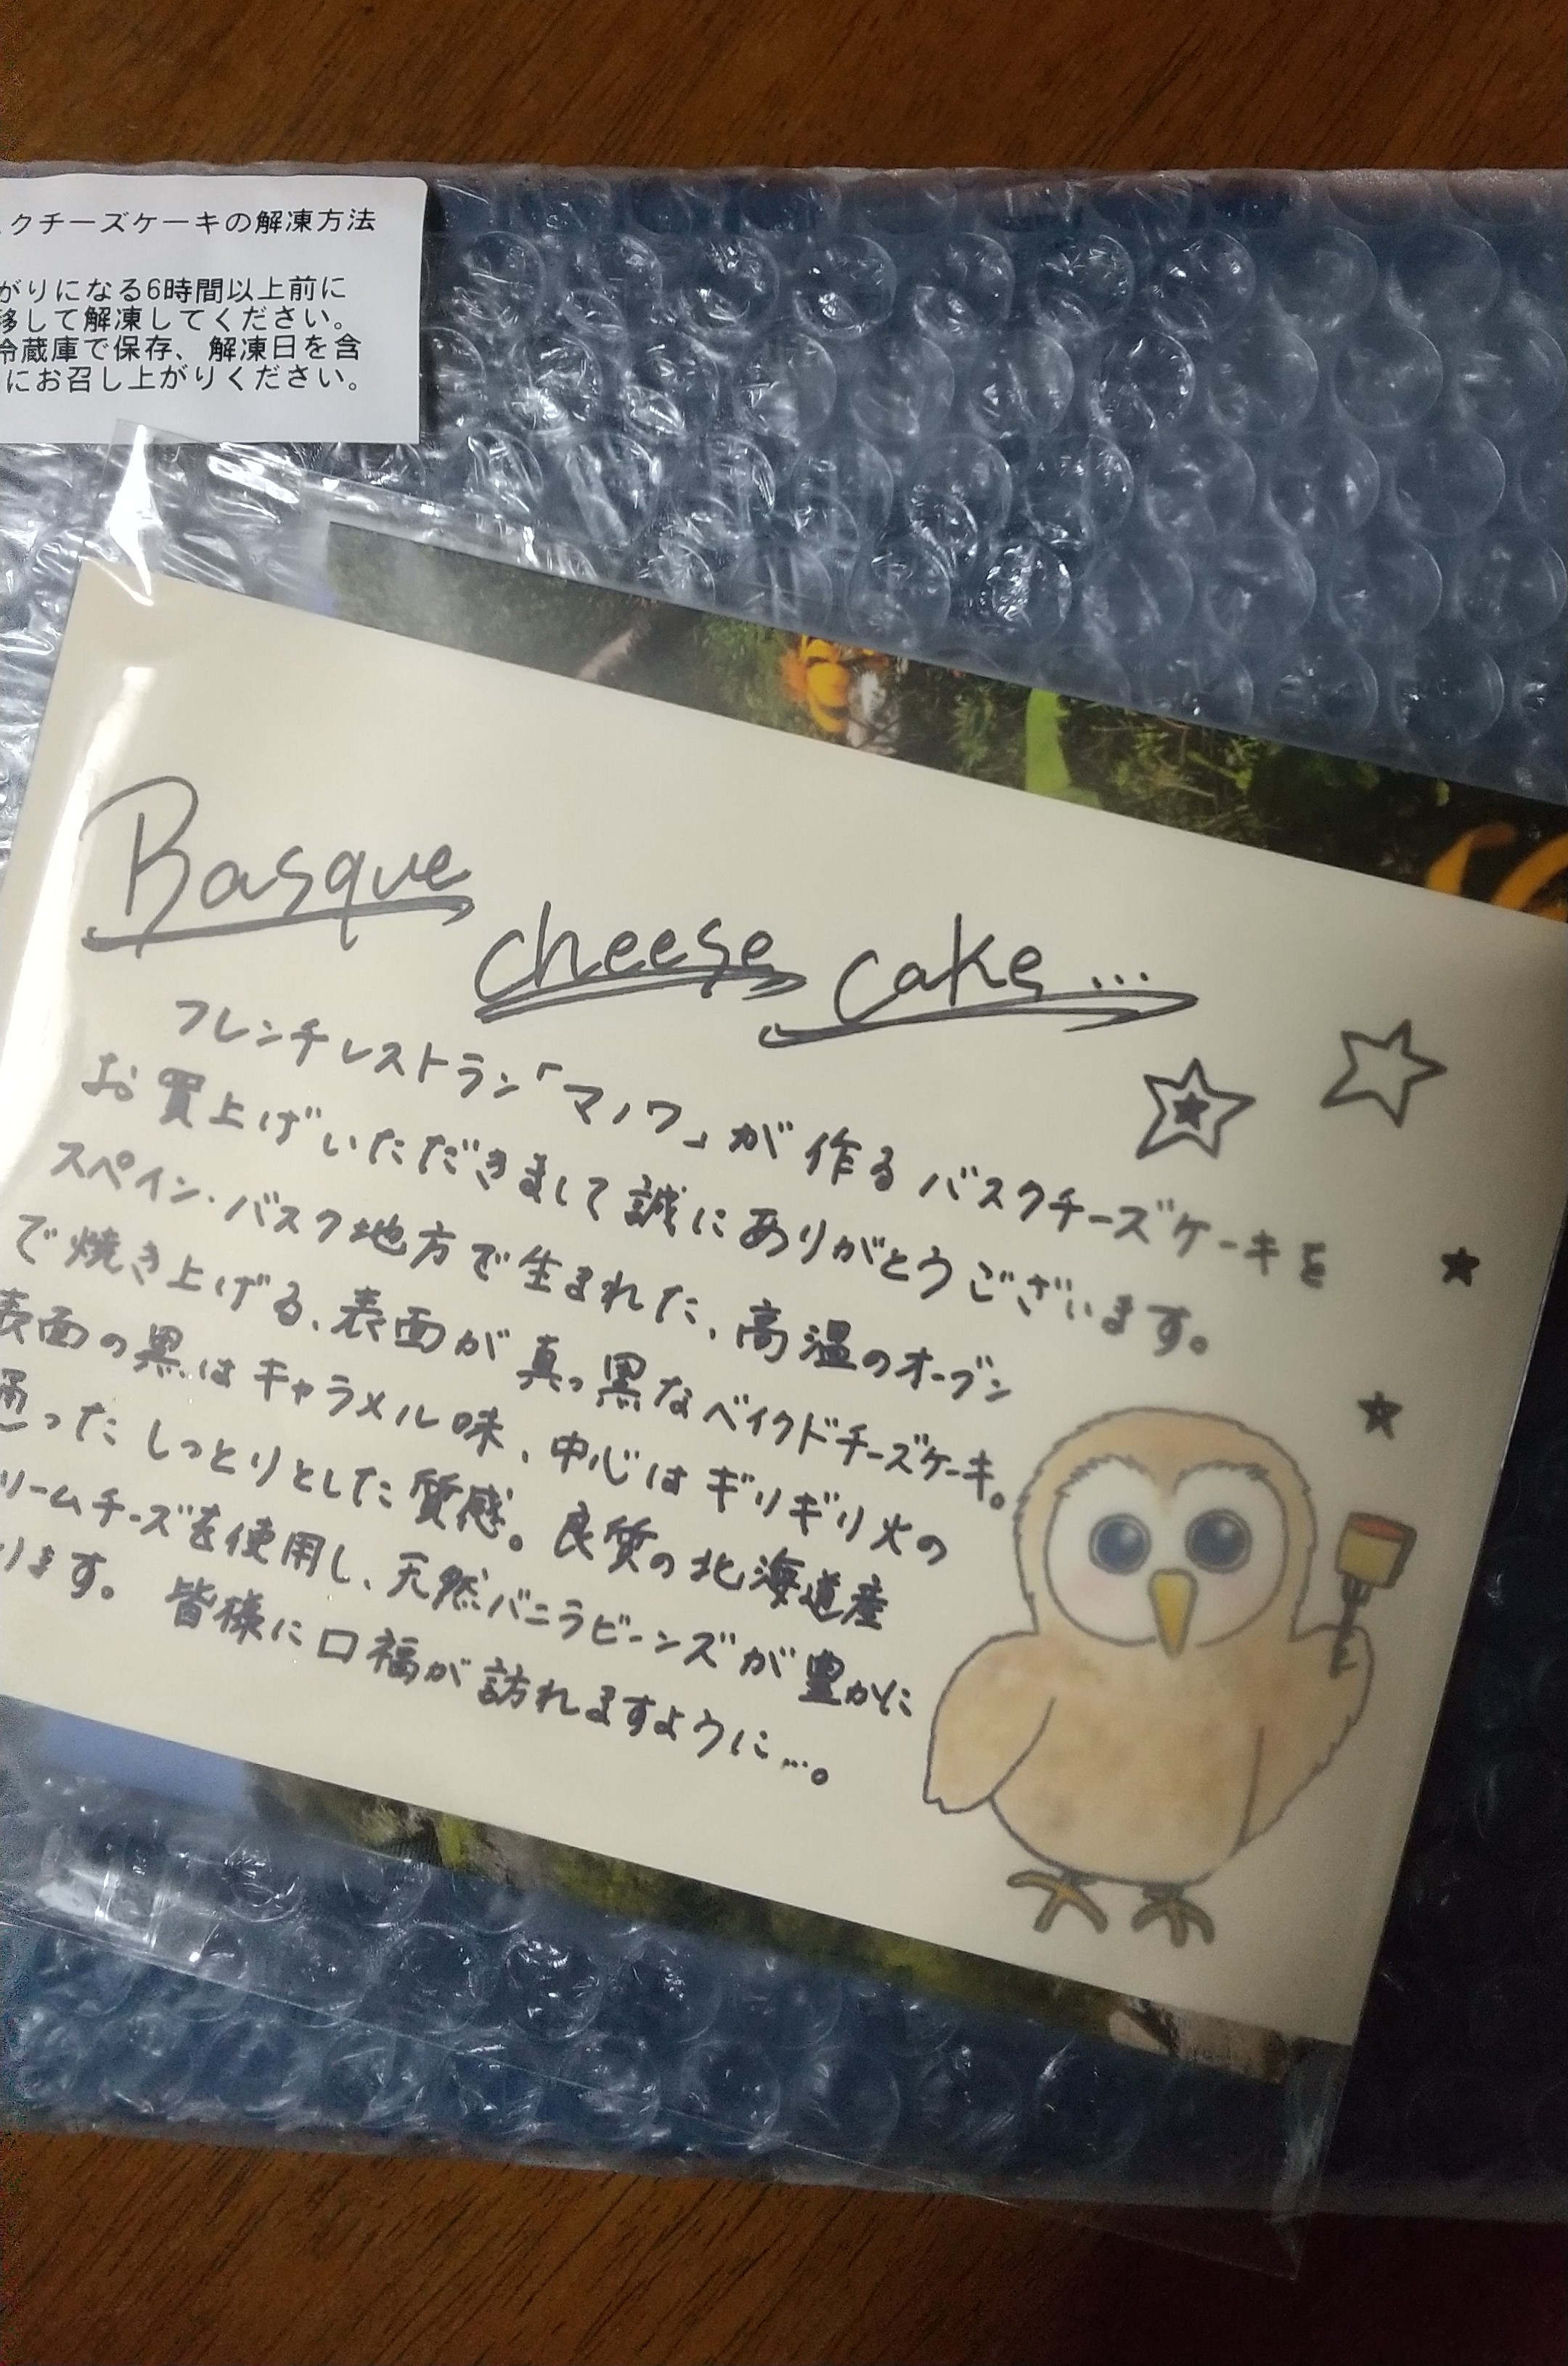 クチーズケーキの解凍方法
がりになる6時間以上前に
移して解凍してください。
冷蔵庫で保存、解凍日を含
にお召し上がりください。
Basque
cheese cake...
フレンチレストラン「マノワ」が作るバスクチーズケーキを
お買上げいただきまして誠にありがとうございます。
スペイン・バスク地方で生まれた、高温のオーブン
で焼き上げる、表面が真っ黒なベイクドチーズケーキ。
表面の黒はキャラメル味、中心はギリギリ火の
通ったしっとりとした質感。良質の北海道産
リームチーズを使用し、天然バニラビーンズが豊かに
ります。皆様に口福が訪れますように...。